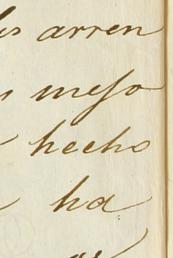 arren
mejo
hecho
ha